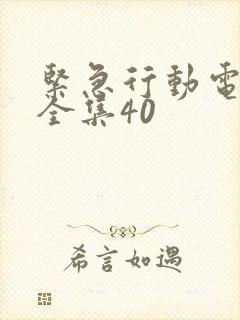 緊急行動電
全集40
希言如遇